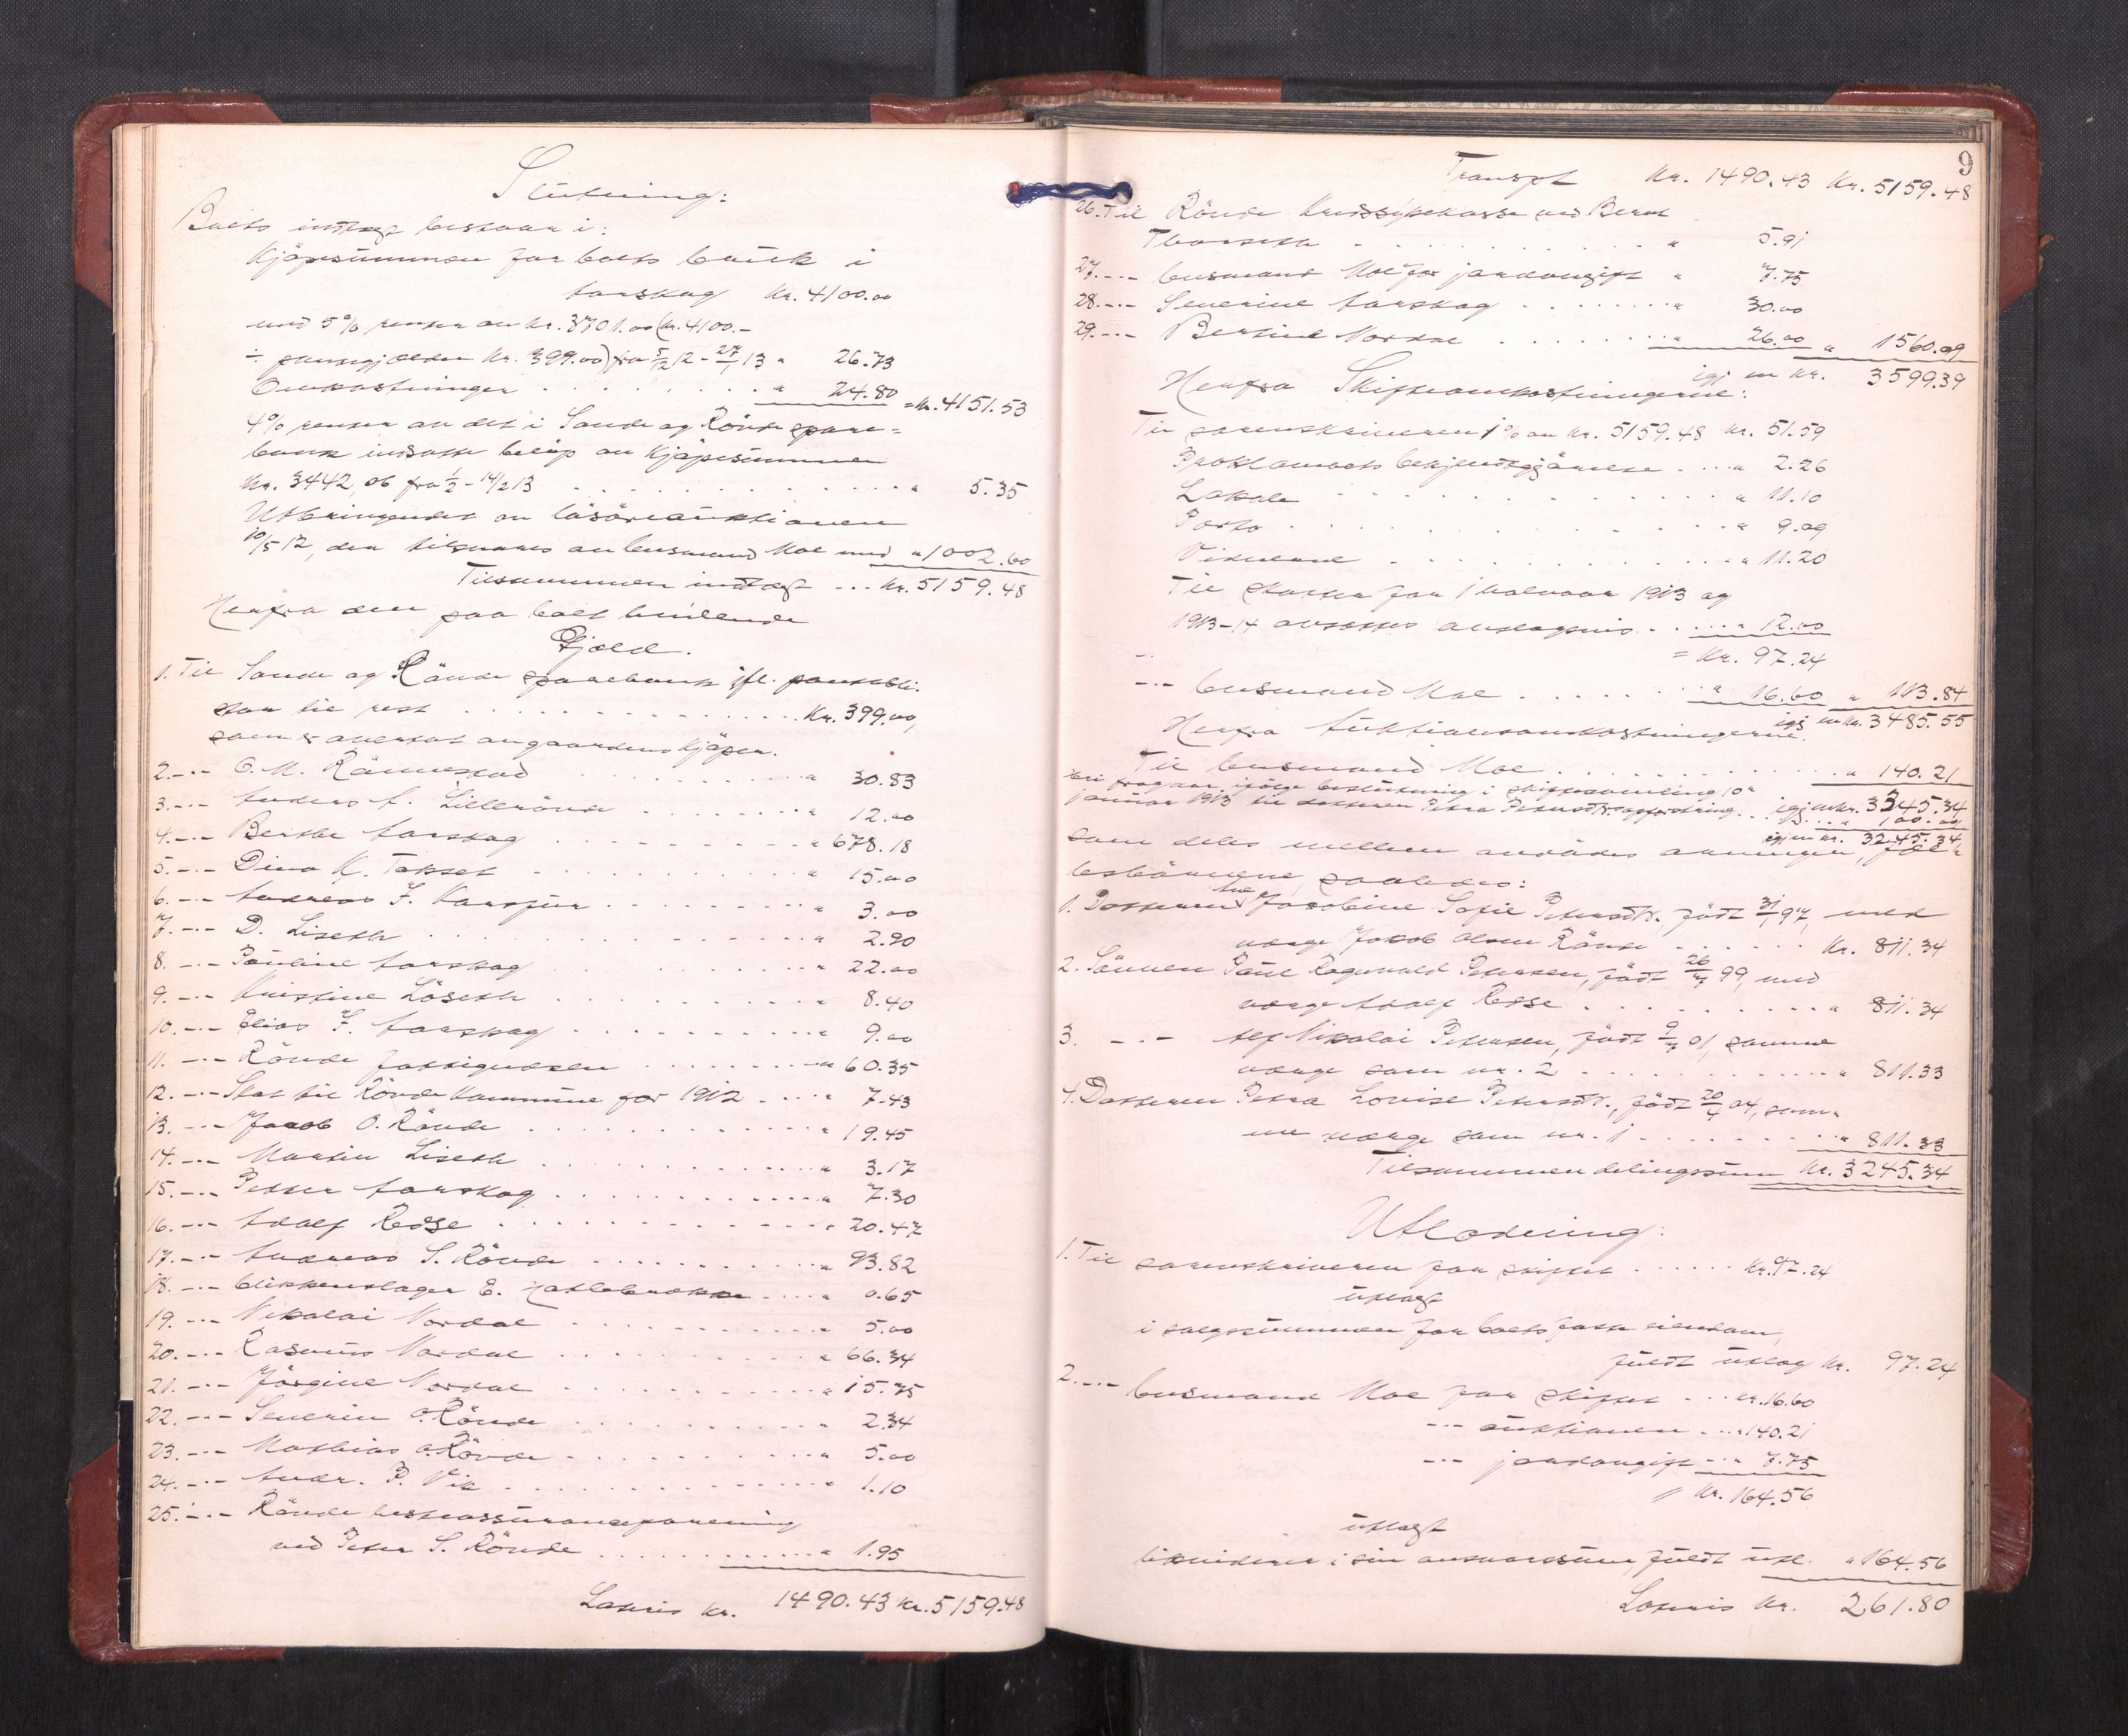 Slutning:
Boets indtægt bestaar i:
Kjöpesummen for boets bruk i
Aarskog Kr. 4100.00
med 5% renter av kr. 3701.00 (kr. 4100.-
÷ pantegjælden kr. 399.00) fra 5/12 12 - 27/1 13 " 26.73
Omkostninger " 24.80 = kr. 4151.53
4% renter av det i Sande og Rövde spare=
bank indsatte belöp av kjöpesummen
kr. 3442,06 fra 1/2 - 14/2 13 " 5.35
Utbringendet av lösöreauktionen
10/5 12, der tilsvares av lensmand Moe med " 1002.60
Tilsammen indtægt ... kr. 5159.48
Herfra den paa boet hvilende
Gjæld.
1. Til Sande og Rövde sparebank ifl. pantobli.
gation til rest Kr. 399.00,
som er overtat av gaardens kjöper.
2. -"- O. M. Rönnestad " 30.83
3. -"- Anders A. Lillerövde " 12.00
4. -"- Berthe Aarskog " 678.18
5. -"- Dina K. Takset " 15.00
6. -"- Andreas J. " 3.00
7. -"- D. Liseth " 2.90
8. -"- Pauline Aarskog " 22.00
9. -"- Kristine Löseth " 8.40
10. -"- Elias J. Aarskog " 9.00
11. -"- Rövde fattigvæsen " 60.35
12. -"- Skat til Rövde kommune for 1912 " 7.43
13. -"- Jacob O. Rövde " 19.45
14. -"- Martin Liseth " 3.17
15. -"- Petter Aarskog " 7.30
16. -"- Adolf Reise " 20.47
17. -"- Andreas S. Rövde " 93.82
18. -"- blikkenslager E. Hatlebrekke " 0.65
19. -"- Nikolai Nordal " 5.00
20. -"- Rasmus Nordal " 66.34
21. -"- Jörgine Nordal " 15.75
22. -"- Severin O. Rövde " 2.34
23. -"- Mathias O. Rövde " 5.00
24. -"- Andr. P. Vik " 1.10
25. -"- Rövde hesteassuranceforening
ved Peter S. Rövde " 1.95
Lateris kr. 1490.43 kr. 5159.48
9
Transpt kr. 1490.43 kr. 5159.48
26. Til Rövde kredssykekasse ved Bernt
Thorseth " 5.91
27. -"- lensmand Moe for jordavgift " 7.75
28. -"- Severine Aarskog " 30.00
29. -"- Bertine Nordal " 26.00 " 1560.09
igj en kr. 3599.39
Herfra Skifteomkostningerne:
Til sorenskriveren 1% av kr. 5159.48 kr. 51.59
Proklamaets bekjendtgjörelse " 2.26
Lokale " 11.10
Porto " 9.09
Vidnerne " 11.20
Til skatter for 1 halvaar 1913 og
1913-14 avsættes antagelsvis " 12.00
= kr. 97.24
-"- lensmand Moe " 16.60 " 113.84
igj en kr. 3485.55
Herfra Auktionsomkostningerne:
Til lensmand Moe " 140.21
igj en kr. 3345.34
Heri fragaar ifölge beslutning i skiftesamling 10de
januar 1913 til datteren Petra Petersdtrs opfostring " 100.00
igj en kr. 3245.34
som deles mellem avdödes arvinger, fæl-
lesbörnene, saaledes:
1. Datteren Jacobine Sofie Petersdtr., född 31/1 97, med
verge Jakob Olsen Rövde Kr. 811.34
2. Sönnen Paul Ragnvald Petersen, född 26/4 99, med
verge Adolf Reise " 811.34
3. -"- Alf Nikolai Petersen, född 9/4 01, samme
verge som nr. 2 " 811.33
4. Datteren Petra Lovise Petersdtr., född 20/4 04, sam-
me verge som nr. 1 " 811.33
Tilsammen delingssum kr. 3245.34
Utlodning:
1. Til sorenskriveren for skiftet kr. 97.24
utlagt
i salgssummen for boets faste eiendom,
fuldt utlag kr. 97.24
2. -"- lensmand Moe for skiftet kr. 16.60
-"- auktionen " 140.21
-"- jordavgift " 7.75
kr. 164.56
utlagt
likviderer i sin ansvarssum, fuldt utl. " 164.56
Lateris kr. 261.80